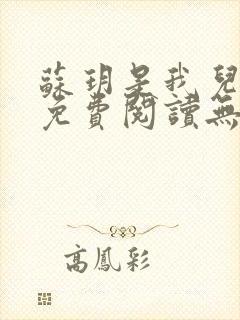 蘇玥是我兒
免費閱讀無
高鳳彩